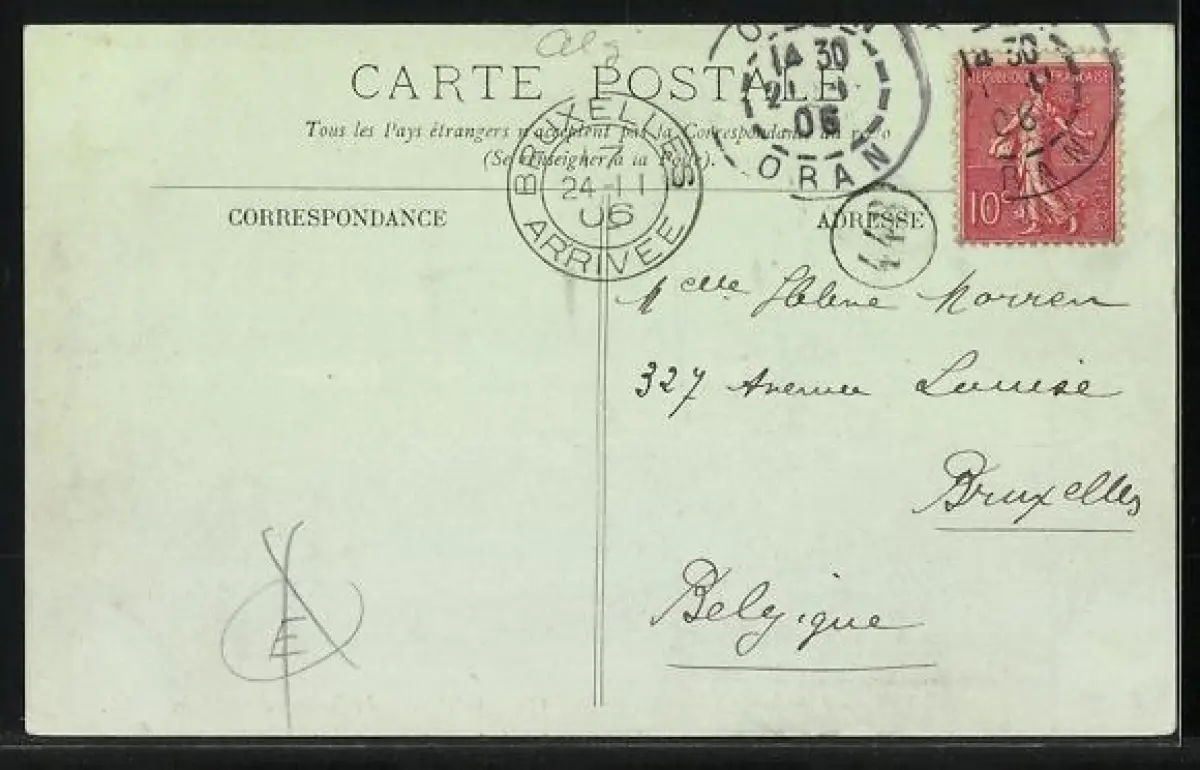 Alg
CARTE POSTALE
Tous les Pays étrangers n'acceptent pas la Correspondance au recto
(Se renseigner à la Poste).
BRUXELLES
24-II
06
ARRIVÉE
14 30
21
06
ORAN
14 30
06
ORAN
REPUBLIQUE FRANÇAISE
10
CORRESPONDANCE
ADRESSE
Melle Hélène Morren
327 Avenue Louise
Bruxelles
Belgique
E